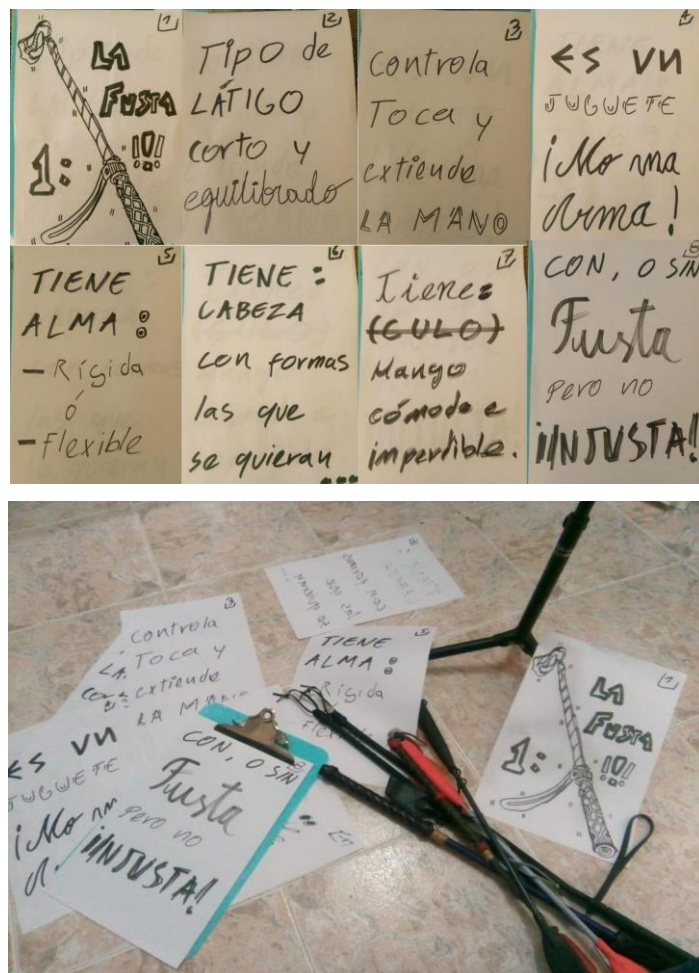 1
LA
FUSTA
1: ¡O!
2
Tipo de
LÁTIGO
corto y
equilibrado
3
Controla
Toca y
extiende
LA MANO
4
ES UN
JUGUETE
¡No una
Arma!
5
TIENE
ALMA:
- Rígida
ó
- Flexible
6
TIENE:
CABEZA
con formas
las que
se quieran
...
7
Tiene:
(CULO)
Mango
cómodo e
imperdible.
8
CON, O SIN
Fusta
Pero no
¡INJUSTA!
3
Controla
LA Toca y
extiende
LA MANO
5
TIENE
ALMA:
Rígida
1
LA
FUSTA
1: ¡O!
ES UN
JUGUETE
¡No
8
CON, O SIN
Fusta
Pero no
¡INJUSTA!